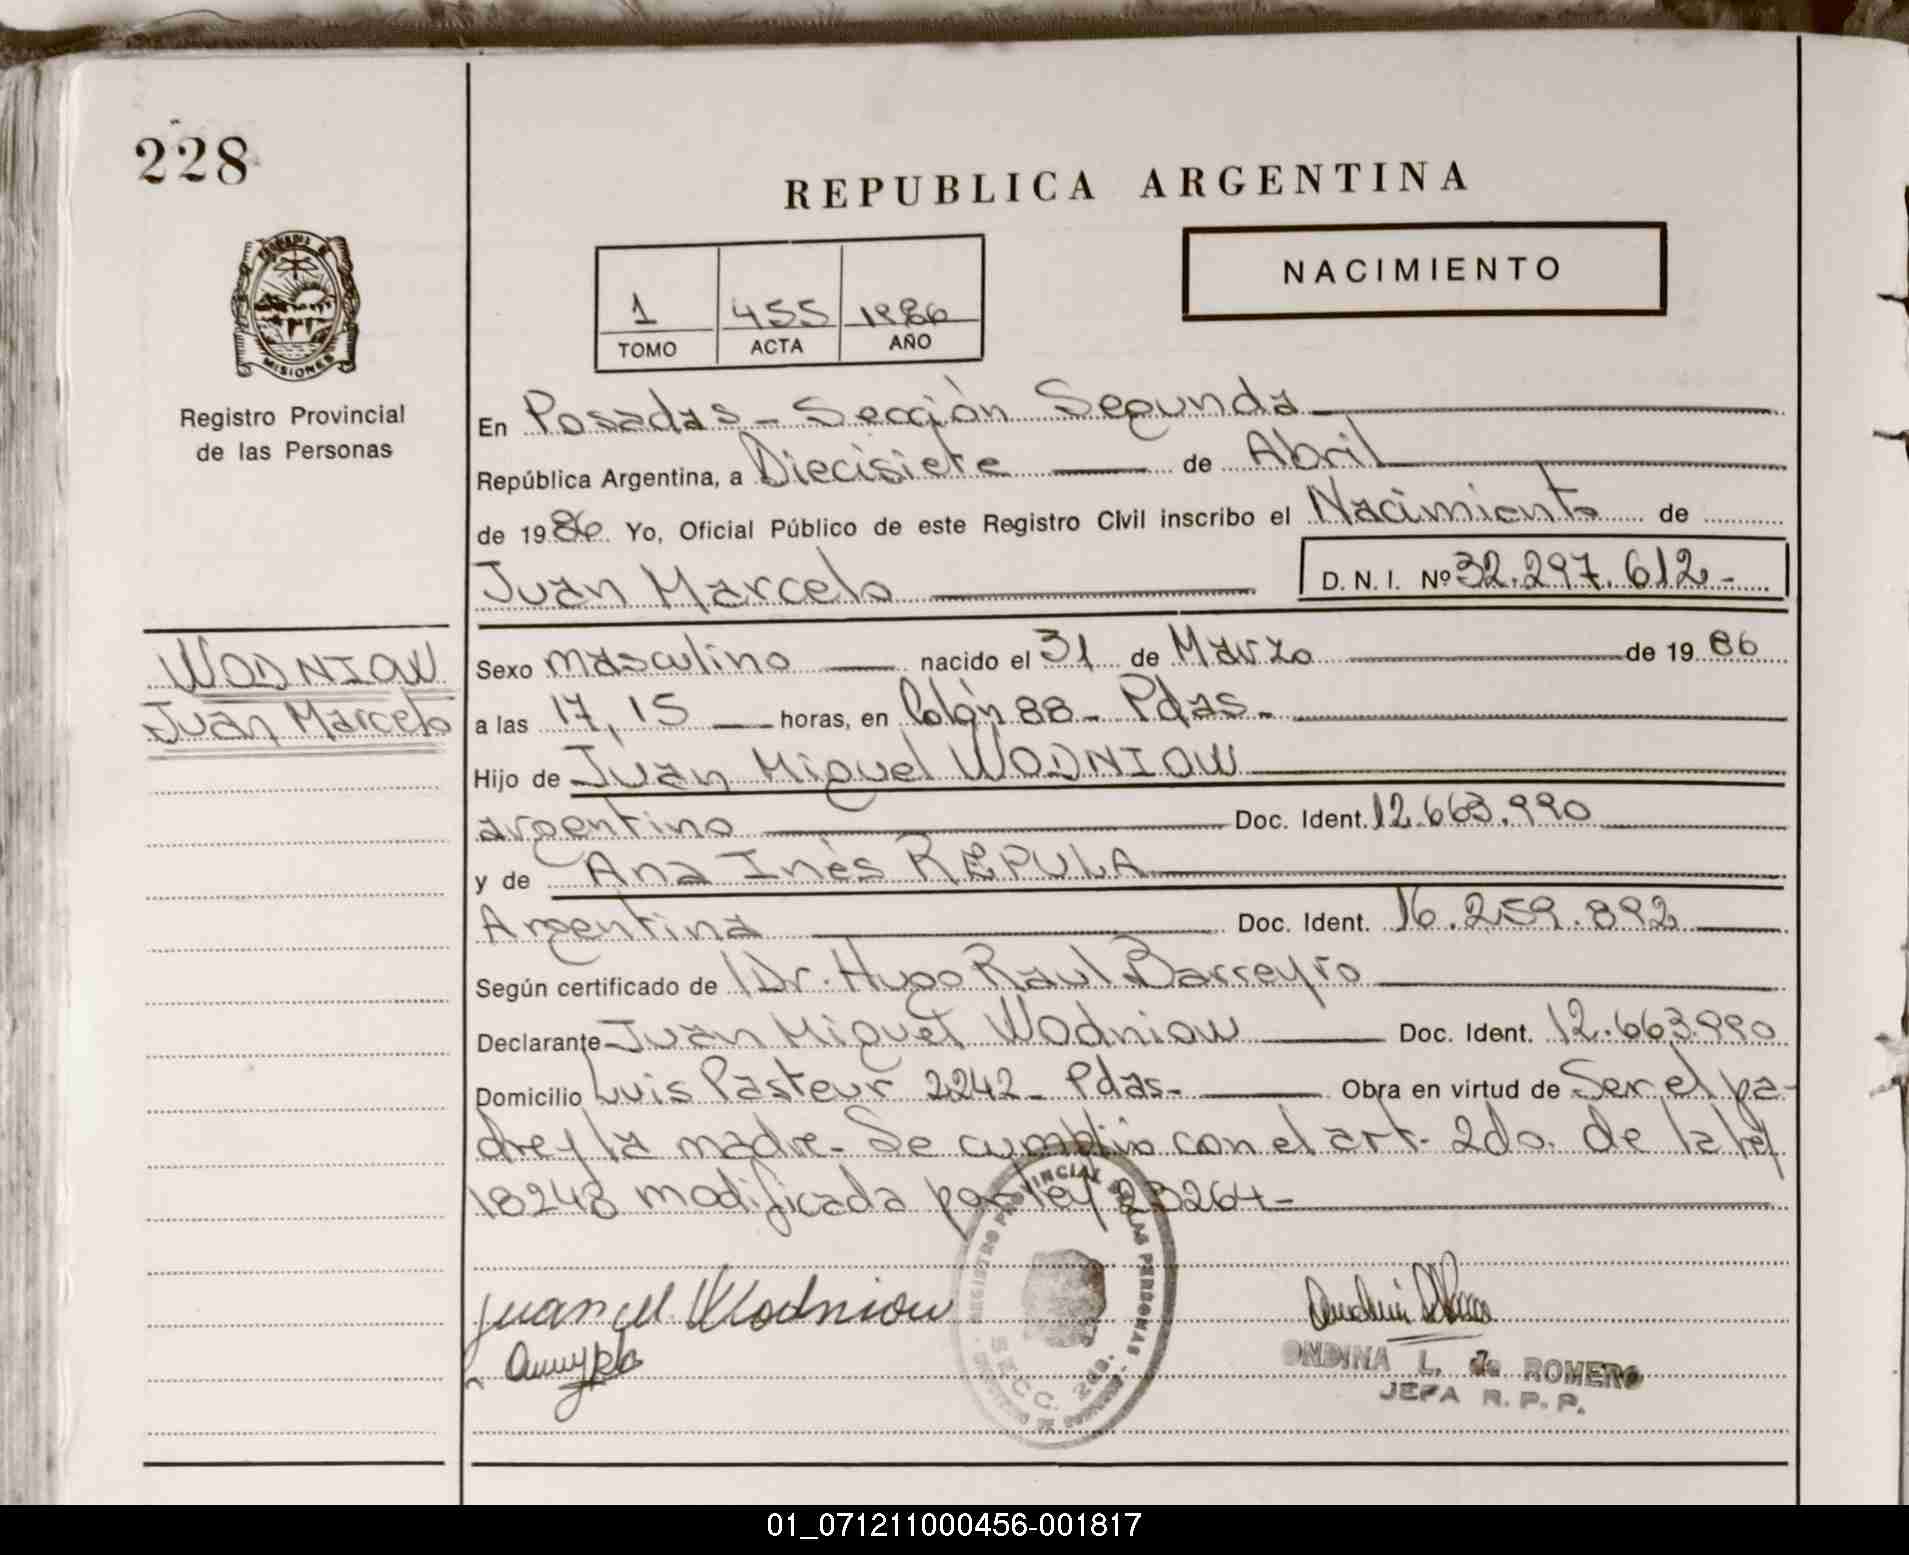 228
REPUBLICA ARGENTINA
NACIMIENTO
1 455 1986
TOMO ACTA AÑO
MISIONES
Registro Provincial
de las Personas
En Posadas - Sección Segunda
República Argentina, a Diecisiete de Abril
de 1986 Yo, Oficial Público de este Registro Civil inscribo el Nacimiento de
Juan Marcelo D. N. I. Nº 32.297.612-
WODNIOW
Juan Marcelo
Sexo masculino nacido el 31 de Marzo de 19 86
a las 17,15 horas, en Colón 88 - Pdas -
Hijo de Juan Miguel WODNIOW
argentino Doc. Ident. 12.663.990
y de Ana Inés REPULA
Argentina Doc. Ident. 16.259.892
Según certificado de Dr. Hugo Raul Barreyro
Declarante Juan Miguel Wodniow Doc. Ident. 12.663.990
Domicilio Luis Pasteur 2242 - Pdas - Obra en virtud de Ser el pa-
dre y la madre - Se cumplio con el art. 2do. de la ley
18248 modificada por ley 23264 -
REGISTRO PROVINCIAL DE LAS PERSONAS
SECC. 2da.
Juan M. Wodniow
ONDINA L. de ROMERO
JEFA R. P. P.
01_071211000456-001817